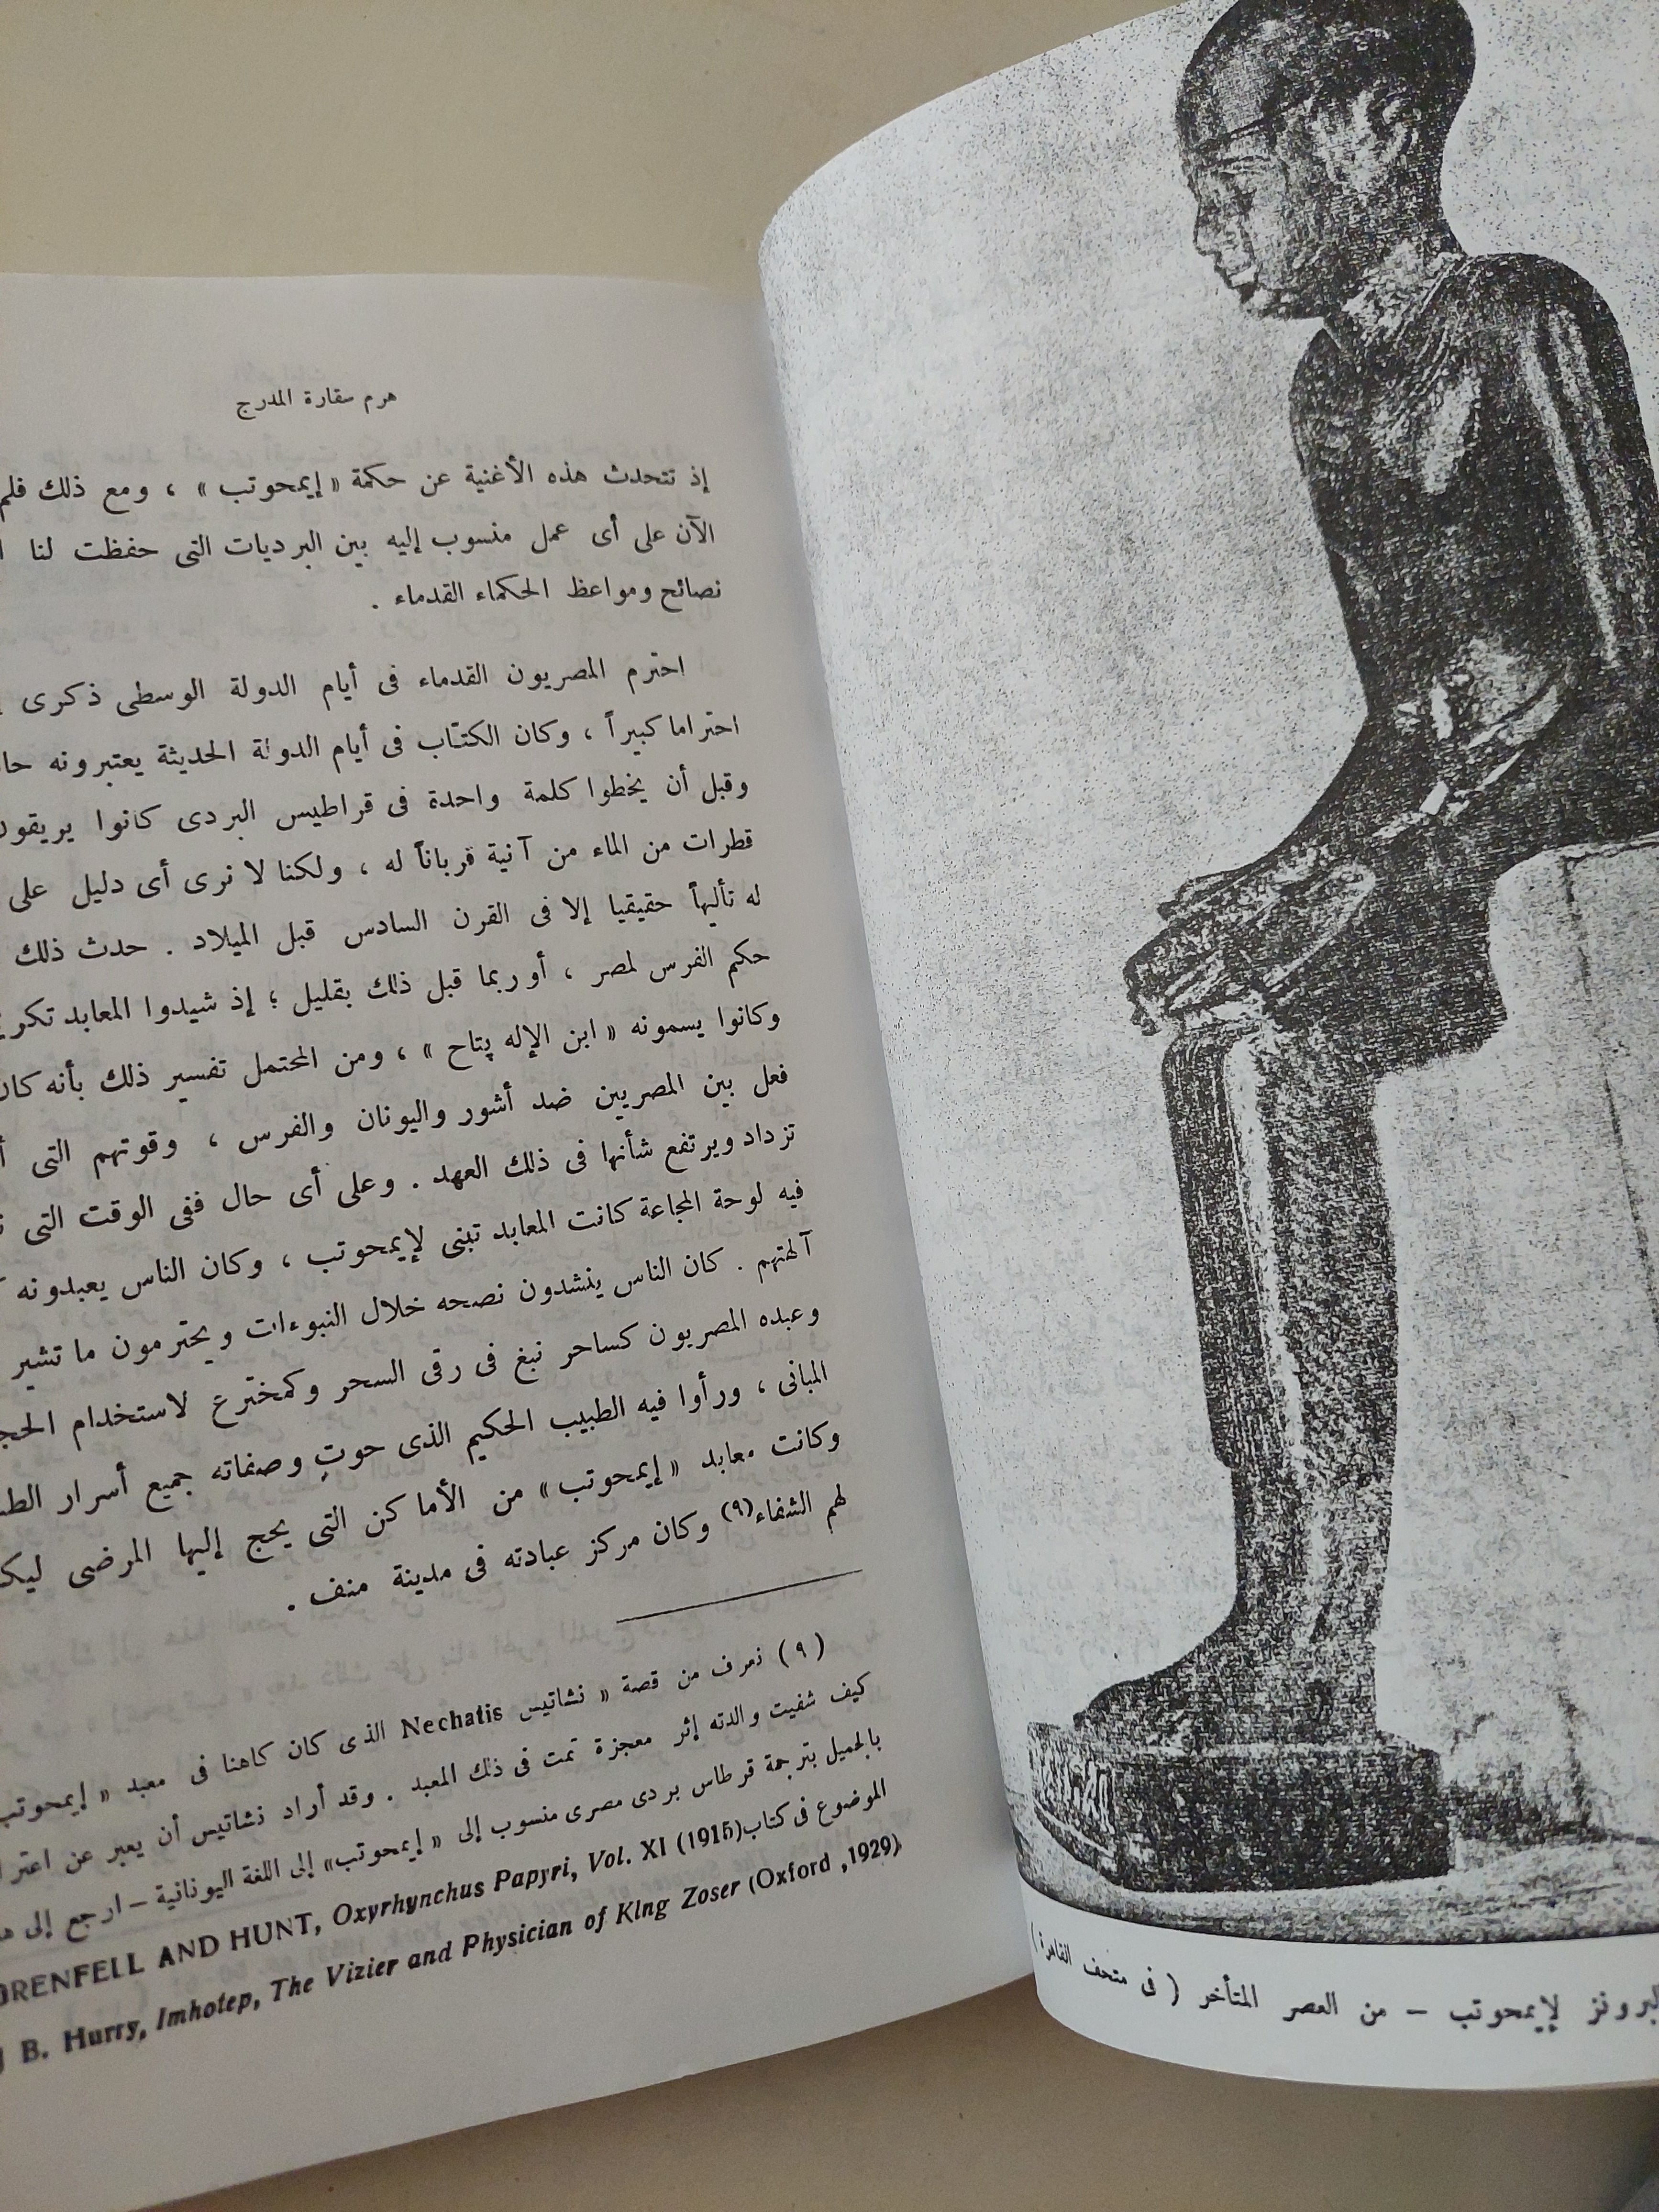 هرم سقارة المدرج
إذ تتحدث هذه الأغنية عن حكمة « إيمحوتب » ، ومع ذلك فلم
الآن على أى عمل منسوب إليه بين البرديات التى حفظت لنا
نصائح ومواعظ الحكماء القدماء .
احترم المصريون القدماء فى أيام الدولة الوسطى ذكرى
احتراما كبيراً ، وكان الكتاب فى أيام الدولة الحديثة يعتبرونه
وقبل أن يخطوا كلمة واحدة فى قراطيس البردى كانوا يريقون
قطرات من الماء من آنية قرباناً له ، ولكنا لا نرى أى دليل على
له تأليهاً حقيقيا إلا فى القرن السادس قبل الميلاد . حدث ذلك
حكم الفرس لمصر ، أو ربما قبل ذلك بقليل ؛ إذ شيدوا المعابد
وكانوا يسمونه « ابن الإله پتاح » ، ومن المحتمل تفسير ذلك بأنه كان
فعل بين المصريين ضد أشور واليونان والفرس ، وقوتهم التى
تزداد ويرتفع شأنها فى ذلك العهد . وعلى أى حال ففى الوقت التى
فيه لوحة المجاعة كانت المعابد تبنى لإيمحوتب ، وكان الناس يعبدونه
آلهتهم . كان الناس ينشدون نصحه خلال النبوءات ويحترمون ما تشير
وعبده المصريون كساحر نبغ فى رقى السحر وكمخترع لاستخدام
المبانى ، ورأوا فيه الطبيب الحكيم الذى حوت وصفاته جميع أسرار
وكانت معابد « إيمحوتب » من الأماكن التى يحج إليها المرضى
لهم الشفاء(٩) وكان مركز عبادته فى مدينة منف .
( ٩ ) نعرف من قصة « نشاتيس Nechatis الذى كان كاهنا فى معبد « إيمحوتب
كيف شفيت والدته إثر معجزة تمت فى ذلك المعبد . وقد أراد نشاتيس أن يعبر عن
بالجميل بترجمة قرطاس بردى مصرى منسوب إلى « إيمحوتب» إلى اللغة اليونانية – ارجع إلى
الموضوع فى كتاب
GRENFELL AND HUNT, Oxyrhynchus Papyri, Vol. XI (1915)
J B. Hurry, Imhotep, The Vizier and Physician of King Zoser (Oxford ,1929)
البرونز لإيمحوتب – من العصر المتأخر ( فى متحف القاهرة )